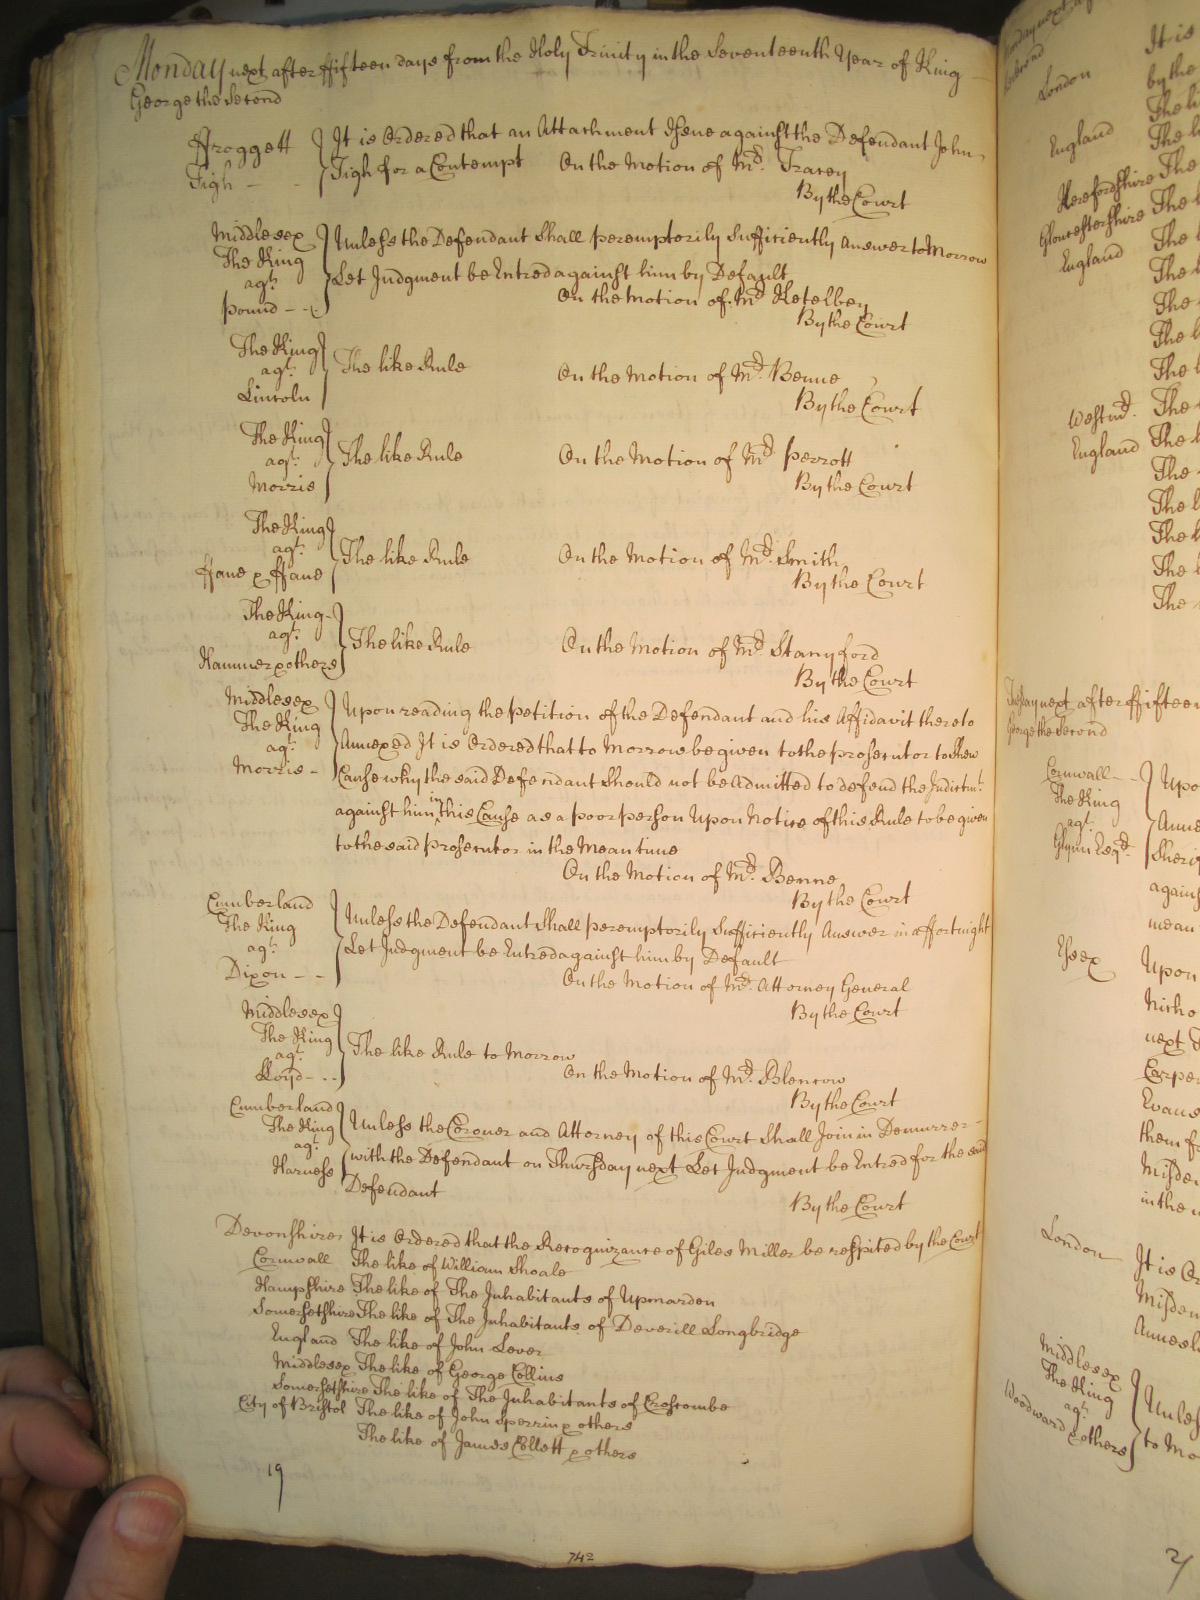 Monday next after ffifteen days from the Holy Trinity in the Seventeenth Year of King
George the Second
ffroggett
Tigh
It is Ordered that an Attachment Issue against the Defendant John
Tigh for a Contempt On the Motion of Mr. Tracey
By the Court
Middlesex
The King
agt.
Pound
Unless the Defendant Shall peremptorily Sufficiently Answer to Morrow
Let Judgment be Entred against him by Default
On the Motion of Mr. Ketelbey
By the Court
The King
agt.
Lincoln
The like Rule On the Motion of Mr. Benne
By the Court
The King
agt.
Morris
The like Rule On the Motion of Mr. Perrott
By the Court
The King
agt.
ffane & ffane
The like Rule On the Motion of Mr. Smith
By the Court
The King
agt.
Hammer & others
The like Rule On the Motion of Mr. Stanyford
By the Court
Middlesex
The King
agt.
Morris
Upon reading the petition of the Defendant and his Affidavit thereto
Annexed It is Ordered that to Morrow be given to the prosecutor to Shew
Cause why the said Defendant Should not be Admitted to defend the Indictmt.
against him in this Cause as a poor person Upon Notice of this Rule to be given
to the said prosecutor in the Mean time
On the Motion of Mr. Benne
By the Court
Cumberland
The King
agt.
Dixon
Unless the Defendant Shall peremptorily Sufficiently Answer in a ffortnight
Let Judgment be Entred against him by Default
On the Motion of Mr. Attorney General
By the Court
Middlesex
The King
agt.
Lloyd
The like Rule to Morrow
On the Motion of Mr. Blencow
By the Court
Cumberland
The King
agt.
Harness
Unless the Coroner and Attorney of this Court Shall Join in Demurrer
with the Defendant on Thursday next Let Judgment be Entred for the said
Defendant
By the Court
Devonshire It is Ordered that the Recognizance of Giles Miller be respited by the Court
Cornwall The like of William Shoale
Hampshire The like of The Inhabitants of Upmarden
Somersetshire The like of The Inhabitants of Deverill Longbridge
England The like of John Lever
Middlesex The like of George Collins
Somersetshire The like of The Inhabitants of Croscombe
City of Bristol The like of John Sperrin & others
The like of James Collett & others
19
742
It is
London by the
The li
England The li
Herefordshire The
Gloucestershire The l
England The
The l
The
The l
The l
Westmd. The
England The l
The
The l
The l
The l
The
Tuesday next after ffifteen
George the Second
Cornwall
The King
agt.
Glynn Esqr.
Upo
Anne
Sheri
again
mean
Essex Upon
Nicho
next
Carpe
Evans
them f
Misde
in the
London It is Or
Misde
Annesl
Middlesex
The King
agt.
Woodward & others
Unles
to Mo